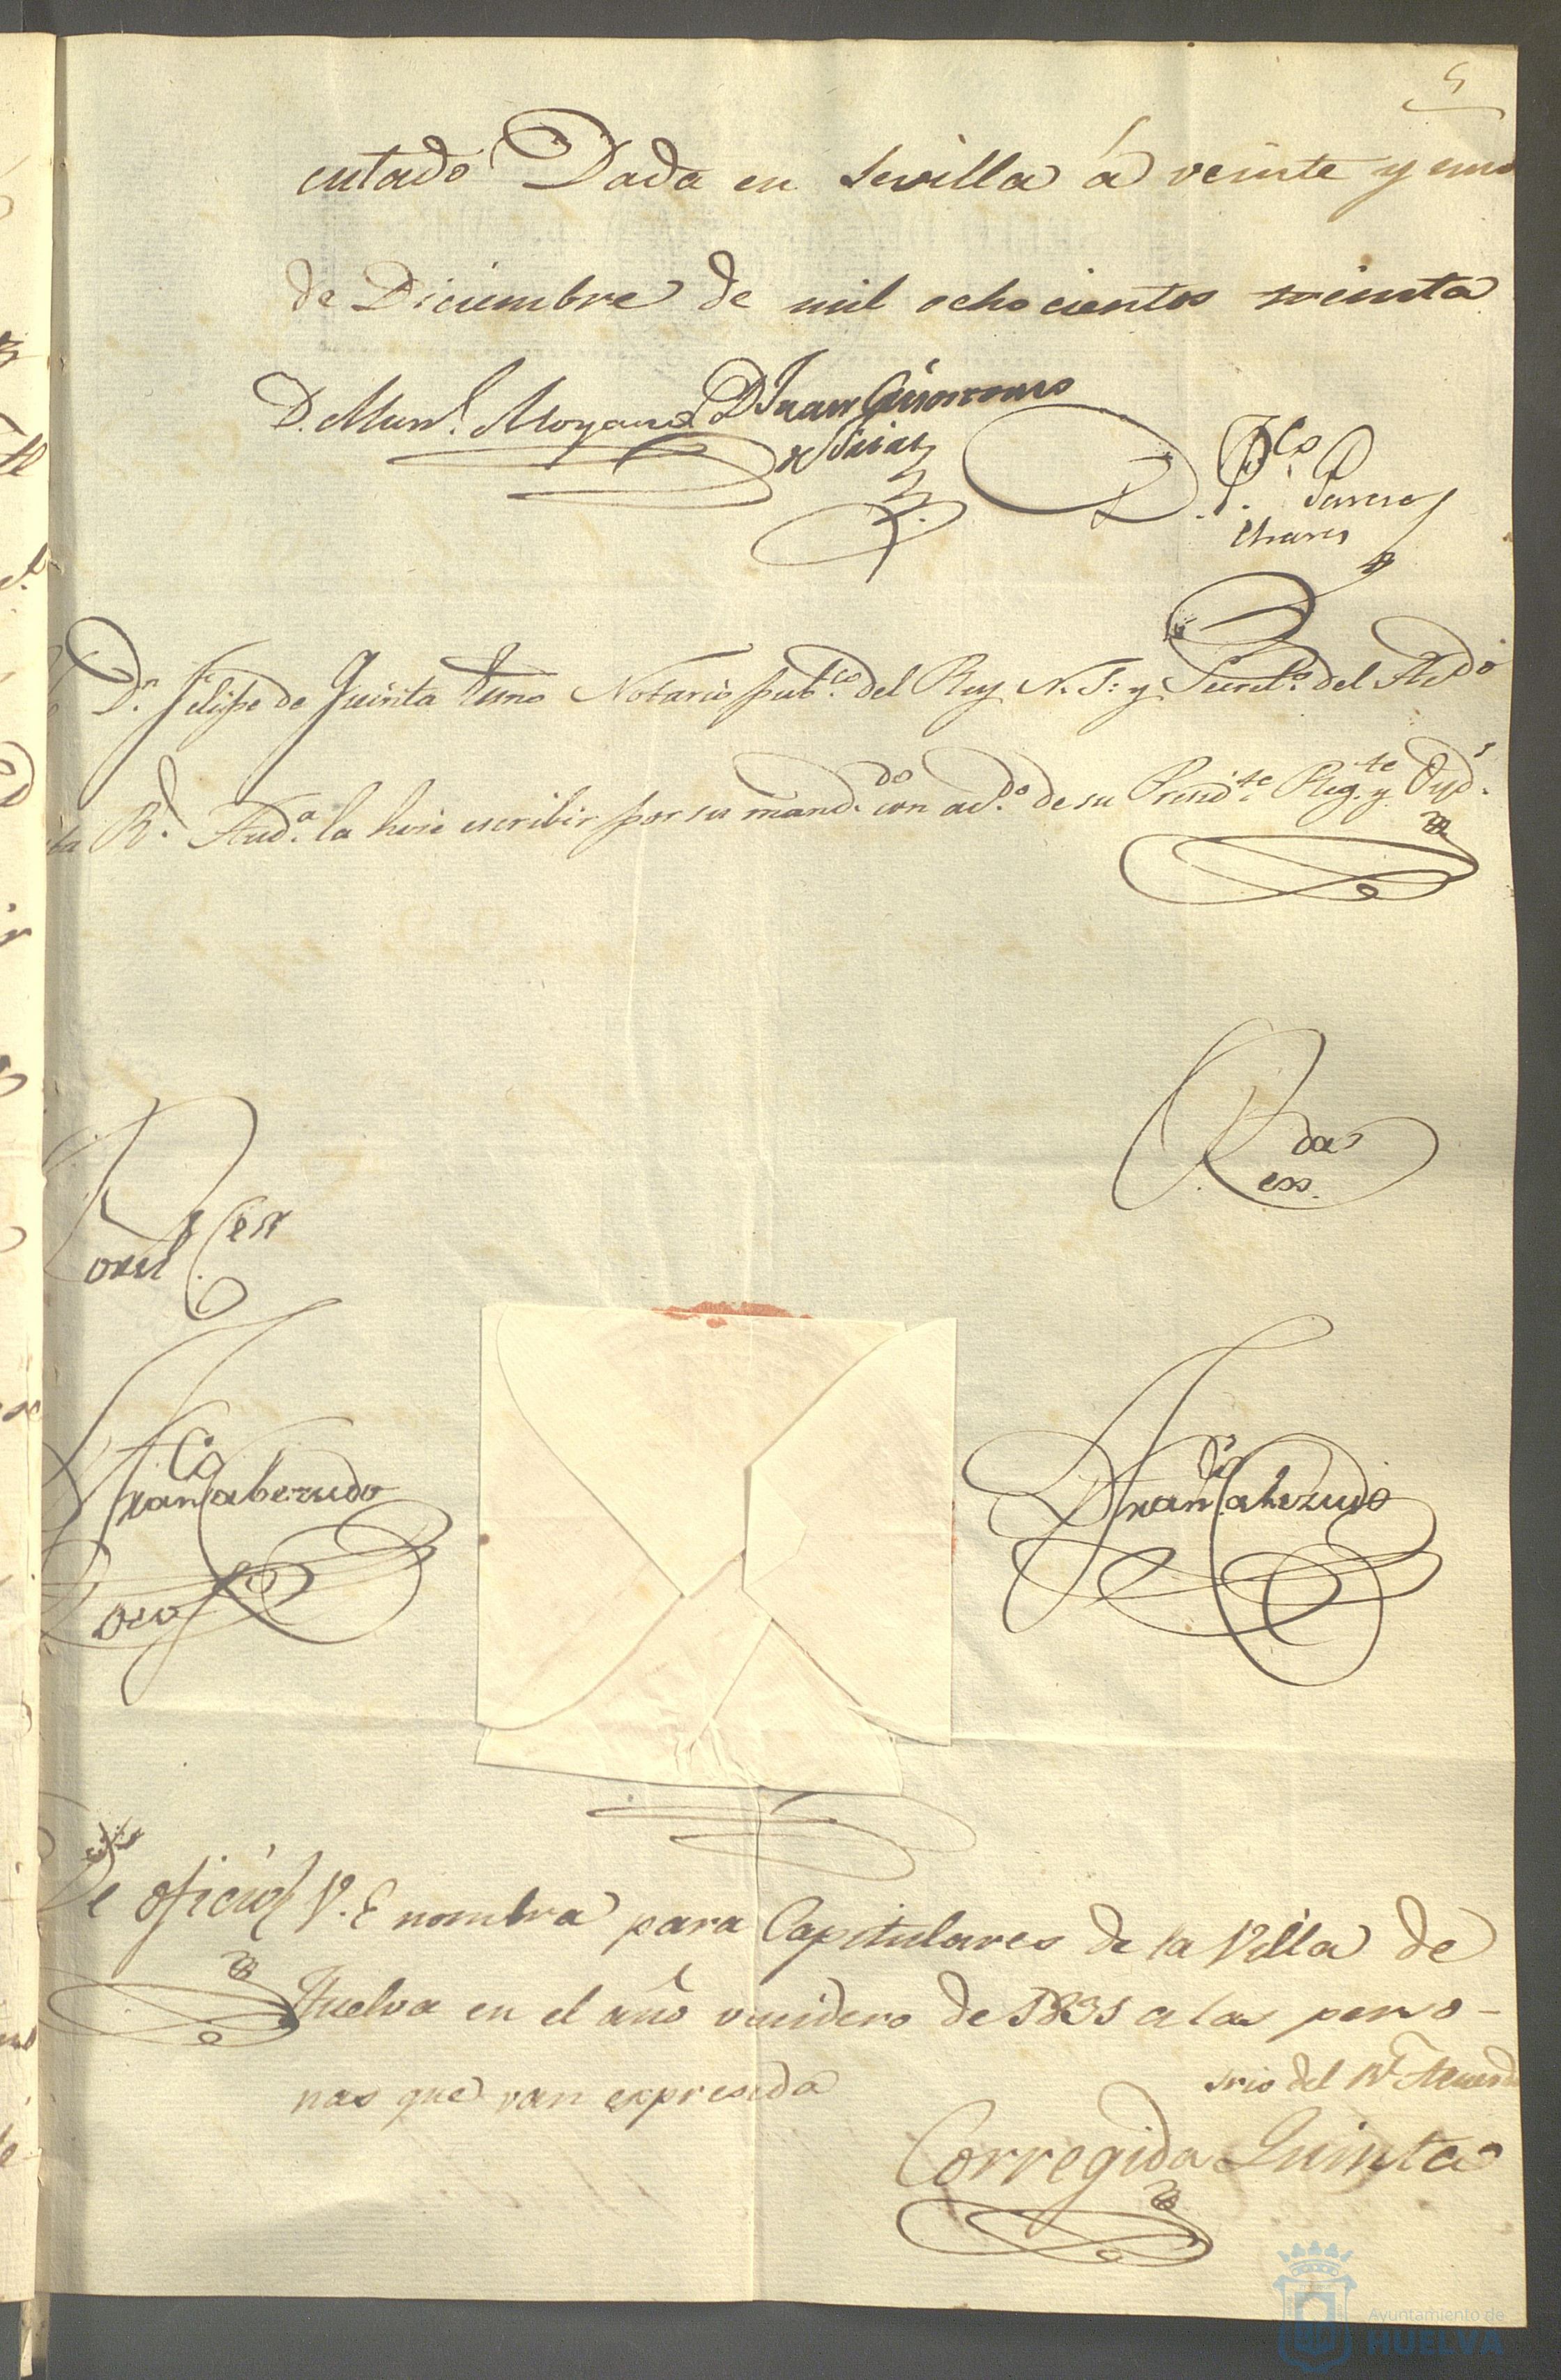 5
cutado Dada en Sevilla á veinte y uno
de Diciembre de mil ochocientos treinta
D. Man.l Moyano D Juan Geronimo
D. Fco. P.
Chaves
D.n Felipe de Quinta Notario pub.co del Rey N. S: y Secret.o del Acdo
R.l Aud.a la hice escribir por su mand.do con ad.o de su Presid.te Reg.te y Oyd.s
Fran.co Caberudo
Fran.co Caberudo
De oficio V. E nombra para Capitulares de la Villa de
Huelva en el año venidero de 1831 a las perso-
nas que van expresada
srio del Rl. Acuerdo
Corregida Quinta
Ayuntamiento de
HUELVA